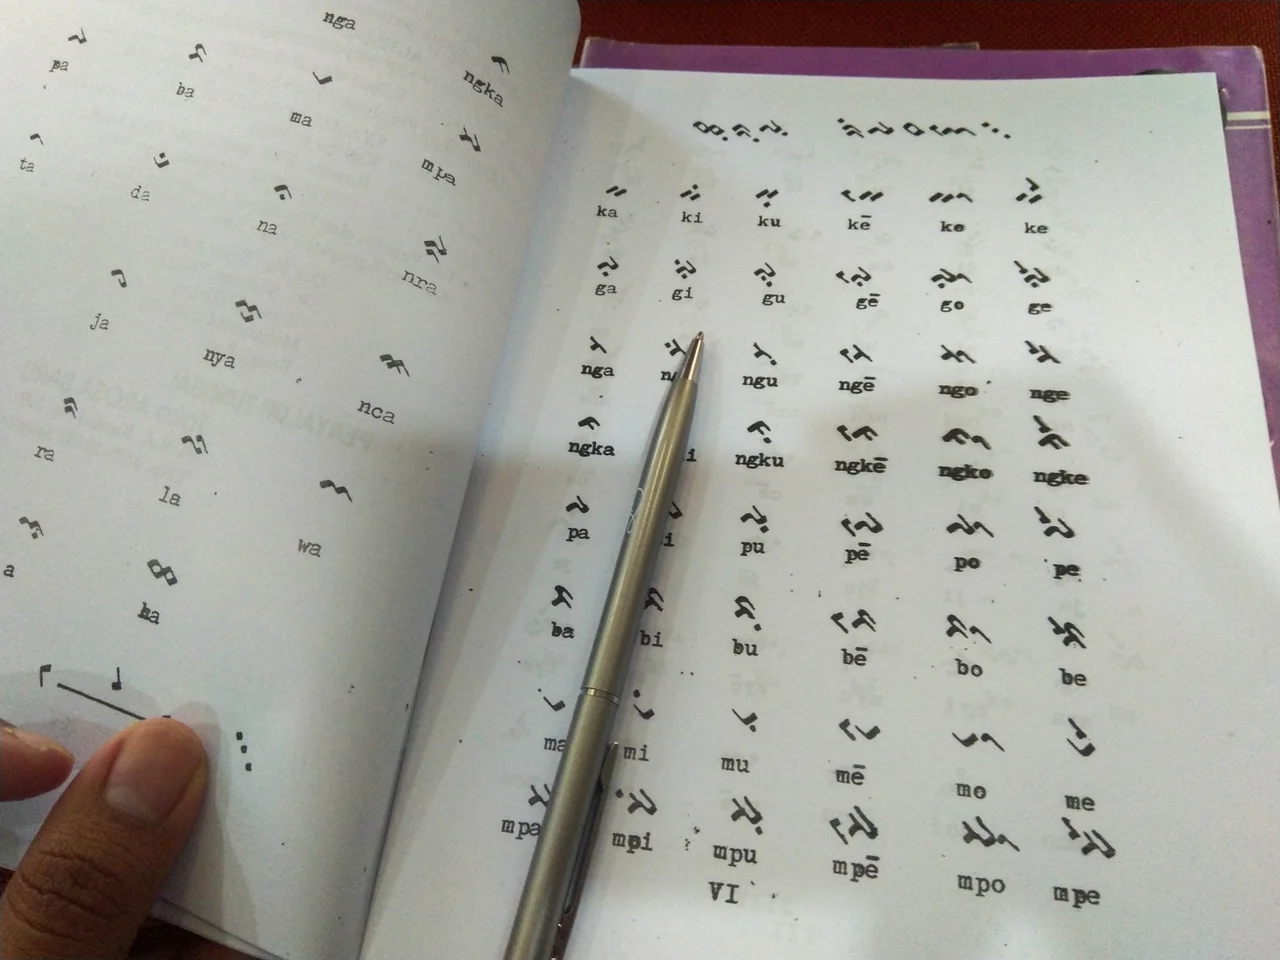 nga
ᨃ
ngka
ᨄ ᨅ ᨆ ᨇ
pa ba ma mpa
ᨈ ᨉ ᨊ ᨋ
ta da na nra
ᨍ ᨎ ᨏ
ja nya nca
ᨑ ᨒ ᨓ
ra la wa
ᨕ ᨖ
a ha
ᨖᨘᨑᨘᨄᨘ
ᨀ ᨀᨗ ᨀᨘ ᨀᨙ ᨀᨚ ᨀᨛ
ka ki ku kē ko ke
ᨁ ᨁᨗ ᨁᨘ ᨁᨙ ᨁᨚ ᨁᨛ
ga gi gu gē go ge
ᨂ ᨂᨗ ᨂᨘ ᨂᨙ ᨂᨚ ᨂᨛ
nga ngu ngē ngo nge
ᨃ ᨃᨘ ᨃᨙ ᨃᨚ ᨃᨛ
ngka ngku ngkē ngko ngke
ᨄ ᨄᨘ ᨄᨙ ᨄᨚ ᨄᨛ
pa pu pē po pe
ᨅ ᨅᨗ ᨅᨘ ᨅᨙ ᨅᨚ ᨅᨛ
ba bi bu bē bo be
ᨆ ᨆᨗ ᨆᨘ ᨆᨙ ᨆᨚ ᨆᨛ
ma mi mu mē mo me
ᨇ ᨇᨗ ᨇᨘ ᨇᨙ ᨇᨚ ᨇᨛ
mpa mpi mpu mpē mpo mpe
VI